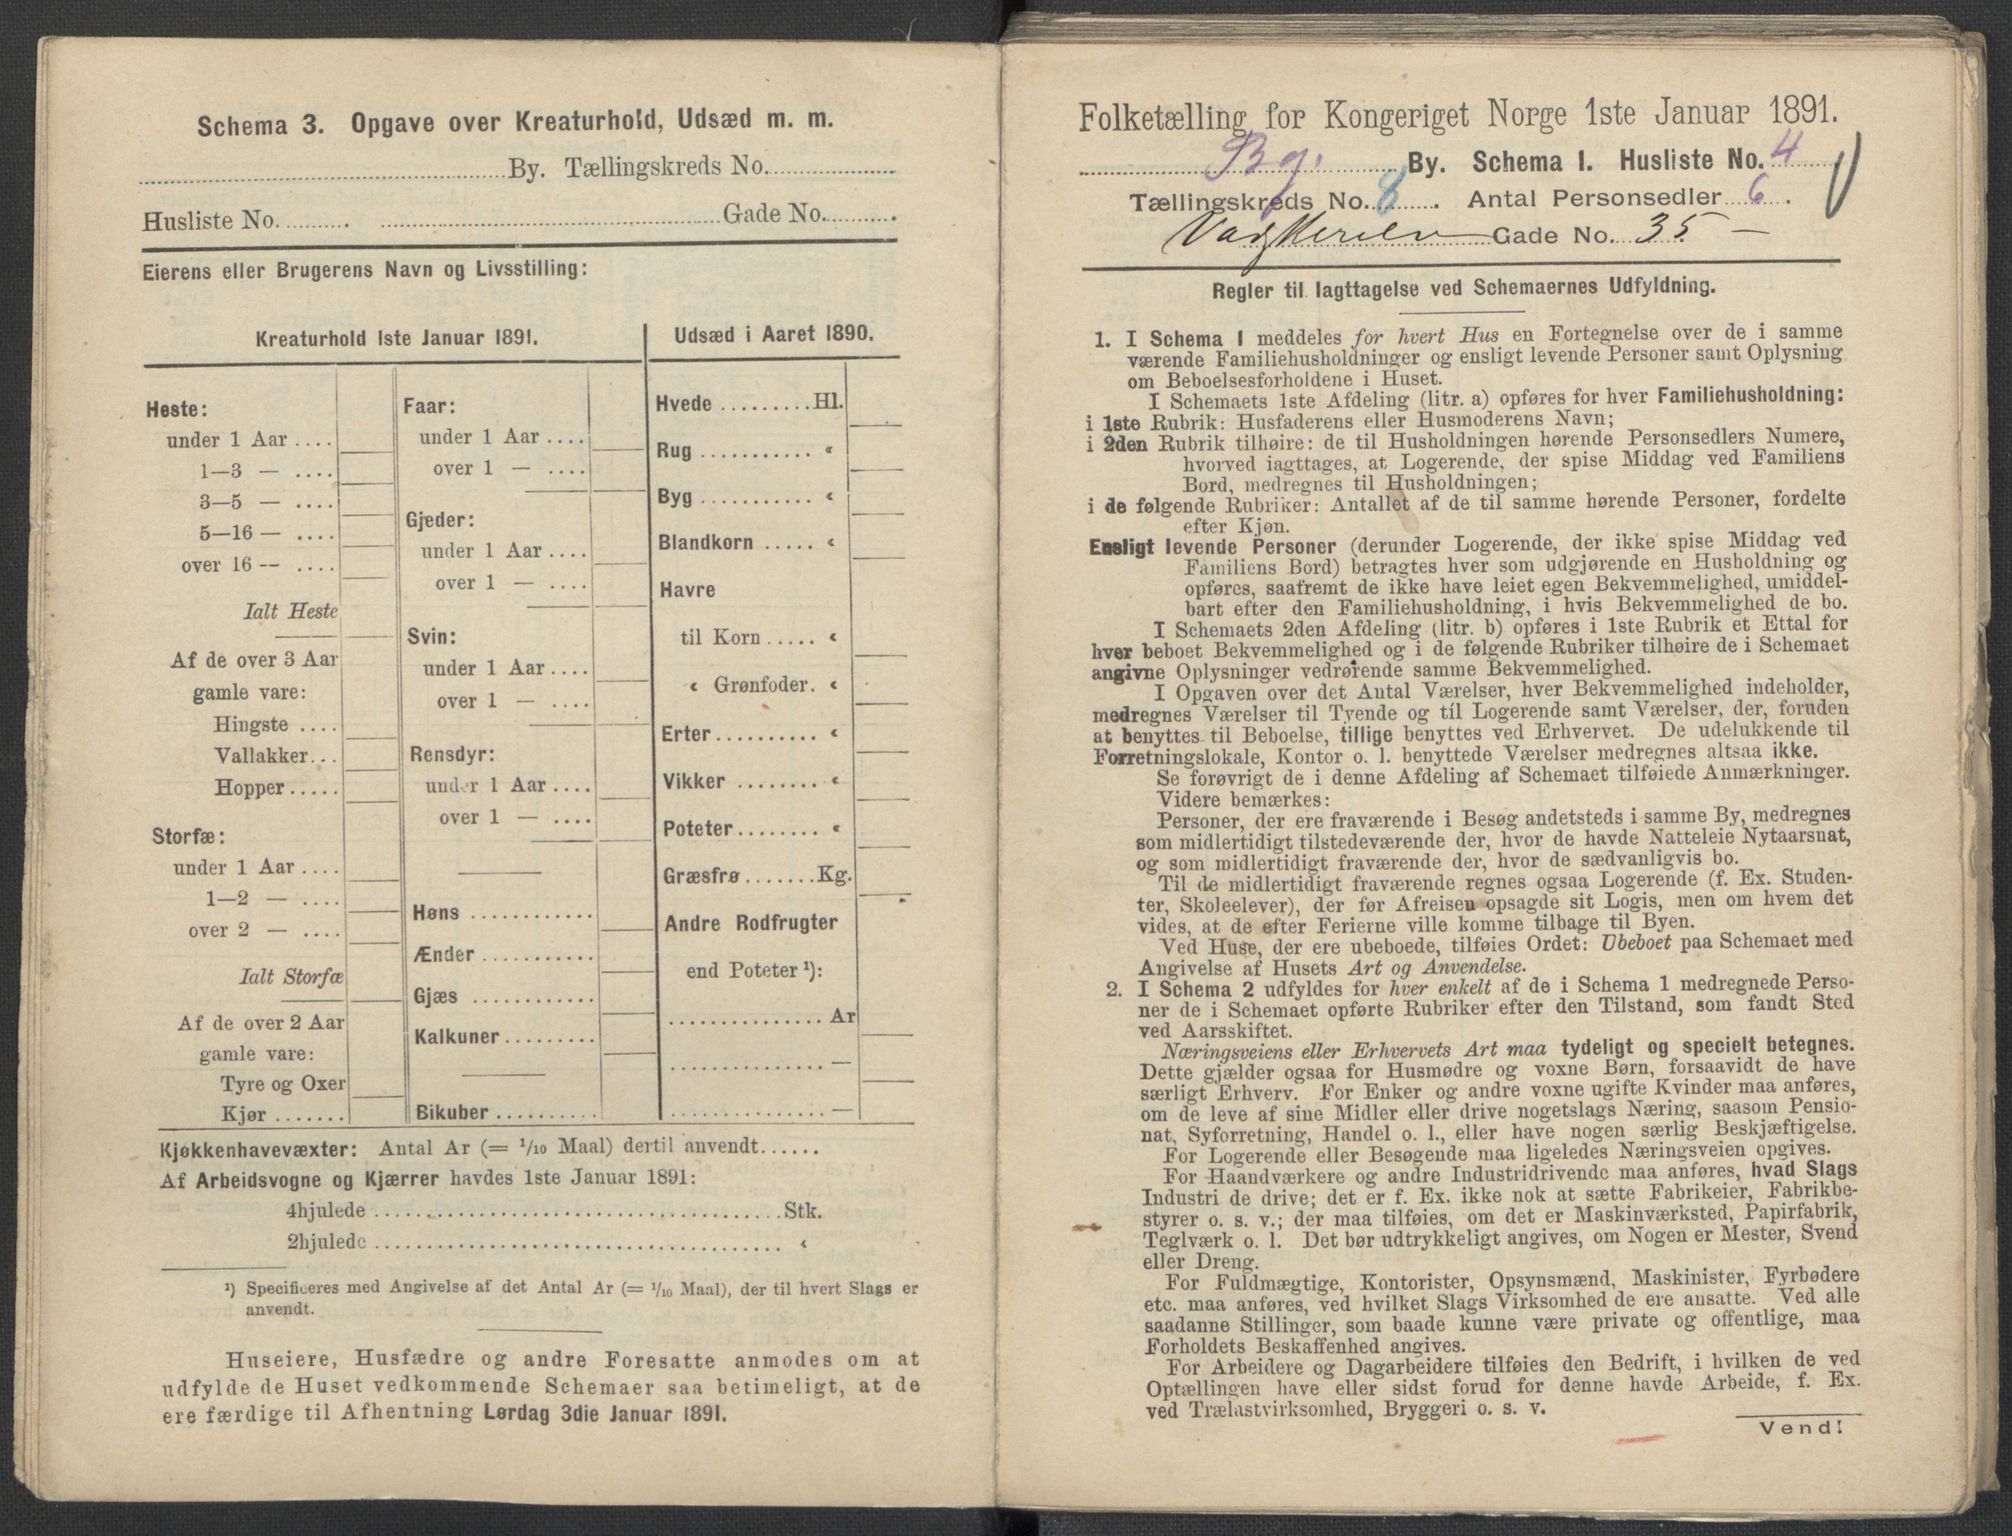 Schema 3. Opgave over Kreaturhold, Udsæd m. m.
By. Tællingskreds No.
Husliste No. Gade No.
Eierens eller Brugerens Navn og Livsstilling:
Kreaturhold 1ste Januar 1891.
Heste:
under 1 Aar ....
1—3 — ....
3—5 — ....
5—16 — ....
over 16 — ....
Ialt Heste
Af de over 3 Aar
gamle vare:
Hingste ....
Vallakker...
Hopper .....
Storfæ:
under 1 Aar ....
1—2 — ....
over 2 — ....
Ialt Storfæ
Af de over 2 Aar
gamle vare:
Tyre og Oxer
Kjør .......
Faar:
under 1 Aar ....
over 1 — ....
Gjeder:
under 1 Aar ....
over 1 — ....
Svin:
under 1 Aar ....
over 1 — ....
Rensdyr:
under 1 Aar ....
over 1 — ....
Høns ...........
Ænder ...........
Gjæs ...........
Kalkuner.........
Bikuber ..........
Udsæd i Aaret 1890.
Hvede .........Hl.
Rug ........... «
Byg ........... «
Blandkorn ..... «
Havre
til Korn ..... «
« Grønfoder. «
Erter.......... «
Vikker ........ «
Poteter........ «
Græsfrø .......Kg.
Andre Rodfrugter
end Poteter ¹):
............... Ar
............... —
............... —
Kjøkkenhavevæxter: Antal Ar (= 1/10 Maal) dertil anvendt......
Af Arbeidsvogne og Kjærrer havdes 1ste Januar 1891:
4hjulede ......................................Stk.
2hjulede ...................................... «
¹) Specificeres med Angivelse af det Antal Ar (= 1/10 Maal), der til hvert Slags er
anvendt.
Huseiere, Husfædre og andre Foresatte anmodes om at
udfylde de Huset vedkommende Schemaer saa betimeligt, at de
ere færdige til Afhentning Lørdag 3die Januar 1891.
Folketælling for Kongeriget Norge 1ste Januar 1891.
Bg. By. Schema 1. Husliste No. 4
Tællingskreds No. 8. Antal Personsedler 6.
Gade No. 35 —
Regler til Iagttagelse ved Schemaernes Udfyldning.
1. I Schema 1 meddeles for hvert Hus en Fortegnelse over de i samme
værende Familiehusholdninger og ensligt levende Personer samt Oplysning
om Beboelsesforholdene i Huset.
I Schemaets 1ste Afdeling (litr. a) opføres for hver Familiehusholdning:
i 1ste Rubrik: Husfaderens eller Husmoderens Navn;
i 2den Rubrik tilhøire: de til Husholdningen hørende Personsedlers Numere,
hvorved iagttages, at Logerende, der spise Middag ved Familiens
Bord, medregnes til Husholdningen;
i de følgende Rubriker: Antallet af de til samme hørende Personer, fordelte
efter Kjøn.
Ensligt levende Personer (derunder Logerende, der ikke spise Middag ved
Familiens Bord) betragtes hver som udgjørende en Husholdning og
opføres, saafremt de ikke have leiet egen Bekvemmelighed, umiddel-
bart efter den Familiehusholdning, i hvis Bekvemmelighed de bo.
I Schemaets 2den Afdeling (litr. b) opføres i 1ste Rubrik et Ettal for
hver beboet Bekvemmelighed og i de følgende Rubriker tilhøire de i Schemaet
angivne Oplysninger vedrørende samme Bekvemmelighed.
I Opgaven over det Antal Værelser, hver Bekvemmelighed indeholder,
medregnes Værelser til Tyende og til Logerende samt Værelser, der, foruden
at benyttes til Beboelse, tillige benyttes ved Erhvervet. De udelukkende til
Forretningslokale, Kontor o. l. benyttede Værelser medregnes altsaa ikke.
Se forøvrigt de i denne Afdeling af Schemaet tilføiede Anmærkninger.
Videre bemærkes:
Personer, der ere fraværende i Besøg andetsteds i samme By, medregnes
som midlertidigt tilstedeværende der, hvor de havde Natteleie Nytaarsnat,
og som midlertidigt fraværende der, hvor de sædvanligvis bo.
Til de midlertidigt fraværende regnes ogsaa Logerende (f. Ex. Studen-
ter, Skoleelever), der før Afreisen opsagde sit Logis, men om hvem det
vides, at de efter Ferierne ville komme tilbage til Byen.
Ved Huse, der ere ubeboede, tilføies Ordet: Ubeboet paa Schemaet med
Angivelse af Husets Art og Anvendelse.
2. I Schema 2 udfyldes for hver enkelt af de i Schema 1 medregnede Perso-
ner de i Schemaet opførte Rubriker efter den Tilstand, som fandt Sted
ved Aarsskiftet.
Næringsveiens eller Erhvervets Art maa tydeligt og specielt betegnes.
Dette gjælder ogsaa for Husmødre og voxne Børn, forsaavidt de have
særligt Erhverv. For Enker og andre voxne ugifte Kvinder maa anføres,
om de leve af sine Midler eller drive nogetslags Næring, saasom Pensio-
nat, Syforretning, Handel o. l., eller have nogen særlig Beskjæftigelse.
For Logerende eller Besøgende maa ligeledes Næringsveien opgives.
For Haandværkere og andre Industridrivende maa anføres, hvad Slags
Industri de drive; det er f. Ex. ikke nok at sætte Fabrikeier, Fabrikbe-
styrer o. s. v.; der maa tilføies, om det er Maskinværksted, Papirfabrik,
Teglværk o. l. Det bør udtrykkeligt angives, om Nogen er Mester, Svend
eller Dreng.
For Fuldmægtige, Kontorister, Opsynsmænd, Maskinister, Fyrbødere
etc. maa anføres, ved hvilket Slags Virksomhed de ere ansatte. Ved alle
saadanne Stillinger, som baade kunne være private og offentlige, maa
Forholdets Beskaffenhed angives.
For Arbeidere og Dagarbeidere tilføies den Bedrift, i hvilken de ved
Optællingen have eller sidst forud for denne havde Arbeide, f. Ex.
ved Trælastvirksomhed, Bryggeri o. s. v.
Vend!